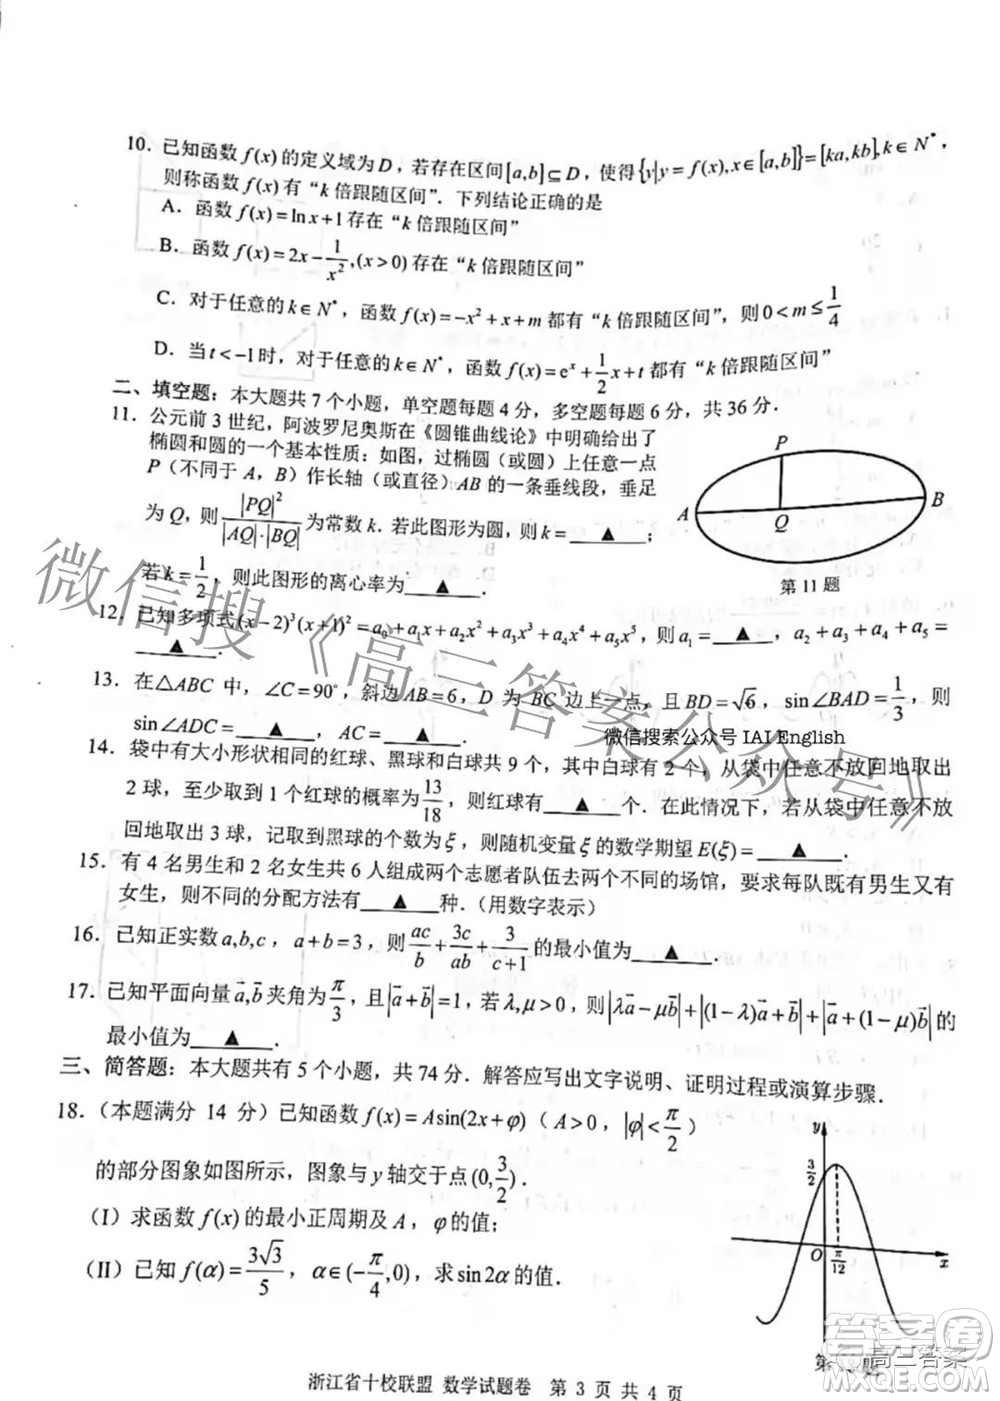 10．已知函数 f(x) 的定义域为 D，若存在区间 [a,b]⊆D，使得 {y|y=f(x),x∈[a,b]}=[ka,kb],k∈N*，
则称函数 f(x) 有“k 倍跟随区间”．下列结论正确的是
A．函数 f(x)=ln x+1 存在“k 倍跟随区间”
B．函数 f(x)=2x-1/x²,(x>0) 存在“k 倍跟随区间”
C．对于任意的 k∈N*，函数 f(x)=-x²+x+m 都有“k 倍跟随区间”，则 0<m≤1/4
D．当 t<-1时，对于任意的 k∈N*，函数 f(x)=e^x+1/2x+t 都有“k 倍跟随区间”
二、填空题：本大题共 7 个小题，单空题每题 4 分，多空题每题 6 分，共 36 分．
11．公元前 3 世纪，阿波罗尼奥斯在《圆锥曲线论》中明确给出了
椭圆和圆的一个基本性质：如图，过椭圆（或圆）上任意一点
P（不同于 A，B）作长轴（或直径）AB 的一条垂线段，垂足
为 Q，则 |PQ|²/|AQ|·|BQ| 为常数 k．若此图形为圆，则 k=▲；
若 k=1/2，则此图形的离心率为▲．
P
A
Q
B
第 11 题
12．已知多项式(x-2)³(x+1)²=a₀+a₁x+a₂x²+a₃x³+a₄x⁴+a₅x⁵，则 a₁=▲，a₂+a₃+a₄+a₅=
▲．
13．在△ABC 中，∠C=90°，斜边 AB=6，D 为 BC 边上一点，且 BD=√6，sin∠BAD=1/3，则
sin∠ADC=▲，AC=▲．
微信搜索公众号 IAI English
14．袋中有大小形状相同的红球、黑球和白球共 9 个，其中白球有 2 个，从袋中任意不放回地取出
2 球，至少取到 1 个红球的概率为 13/18，则红球有▲个．在此情况下，若从袋中任意不放
回地取出 3 球，记取到黑球的个数为 ξ，则随机变量 ξ 的数学期望 E(ξ)=▲．
15．有 4 名男生和 2 名女生共 6 人组成两个志愿者队伍去两个不同的场馆，要求每队既有男生又有
女生，则不同的分配方法有▲种．（用数字表示）
16．已知正实数 a,b,c，a+b=3，则 ac/b+3c/ab+3/(c+1) 的最小值为▲．
17．已知平面向量 a⃗,b⃗ 夹角为 π/3，且|a⃗+b⃗|=1，若 λ,μ>0，则|λa⃗-μb⃗|+|(1-λ)a⃗+b⃗|+|a⃗+(1-μ)b⃗| 的
最小值为▲．
三、简答题：本大题共有 5 个小题，共 74 分．解答应写出文字说明、证明过程或演算步骤．
18．（本题满分 14 分）已知函数 f(x)=Asin(2x+φ)（A>0，|φ|<π/2）
的部分图象如图所示，图象与 y 轴交于点(0,3/2)．
（I）求函数 f(x) 的最小正周期及 A，φ 的值；
（II）已知 f(α)=3√3/5，α∈(-π/4,0)，求 sin2α 的值．
y
3/2
O
π/12
x
浙江省十校联盟 数学试题卷 第 3 页 共 4 页
微信搜《高三答案公众号》
答案卷
高三答案